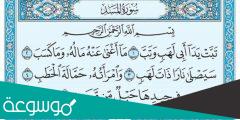 سُورَةُ المَسَد
بِسْمِ اللَّهِ الرَّحْمَٰنِ الرَّحِيمِ
تَبَّتْ يَدَا أَبِي لَهَبٍ وَتَبَّ ١ مَا أَغْنَىٰ عَنْهُ مَالُهُ وَمَا كَسَبَ ٢
سَيَصْلَىٰ نَارًا ذَاتَ لَهَبٍ ٣ وَامْرَأَتُهُ حَمَّالَةَ الْحَطَبِ ٤
فِي جِيدِهَا حَبْلٌ مِّن
موسوعة